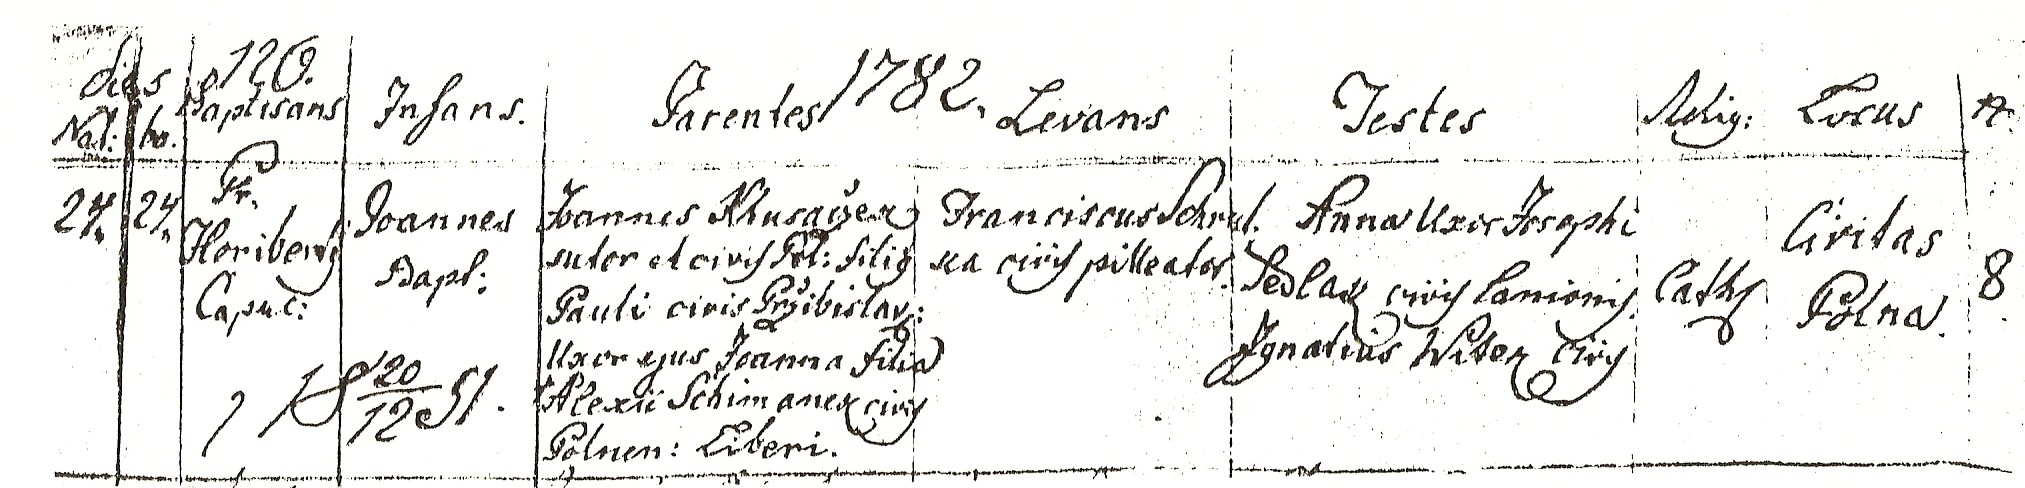 120.
1782.
dies
Nat: ba.
Baptisans
Infans.
Parentes
Levans
Testes
Relig:
Locus
N.
24. 24.
Pr.
Floriberg
Capuc:
Joannes
Bapt:
Joannes Klusaczek
sutor et civis Pol: filius
Pauli civis Przibislav:
Uxor ejus Joanna filia
Alexii Schimanek civis
Polnen: Liberi.
Franciscus Schrut
ka civis pilleator.
Anna Uxor Josephi
Sedlak civis Lanionis.
Ignatius Witek civis
Cath
Civitas
Polna.
8
† 18 20/12 51.